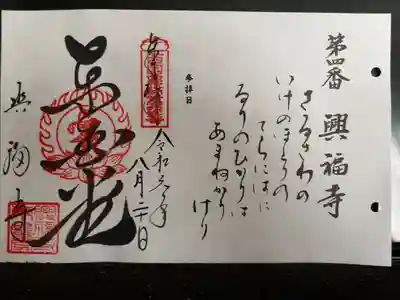 第四番 興福寺
さるさわの
いけのほとりの
てらにはに
るりのひかりは
あまねかり
けり
参拝日
令和
八月二十日
東金堂
興福寺